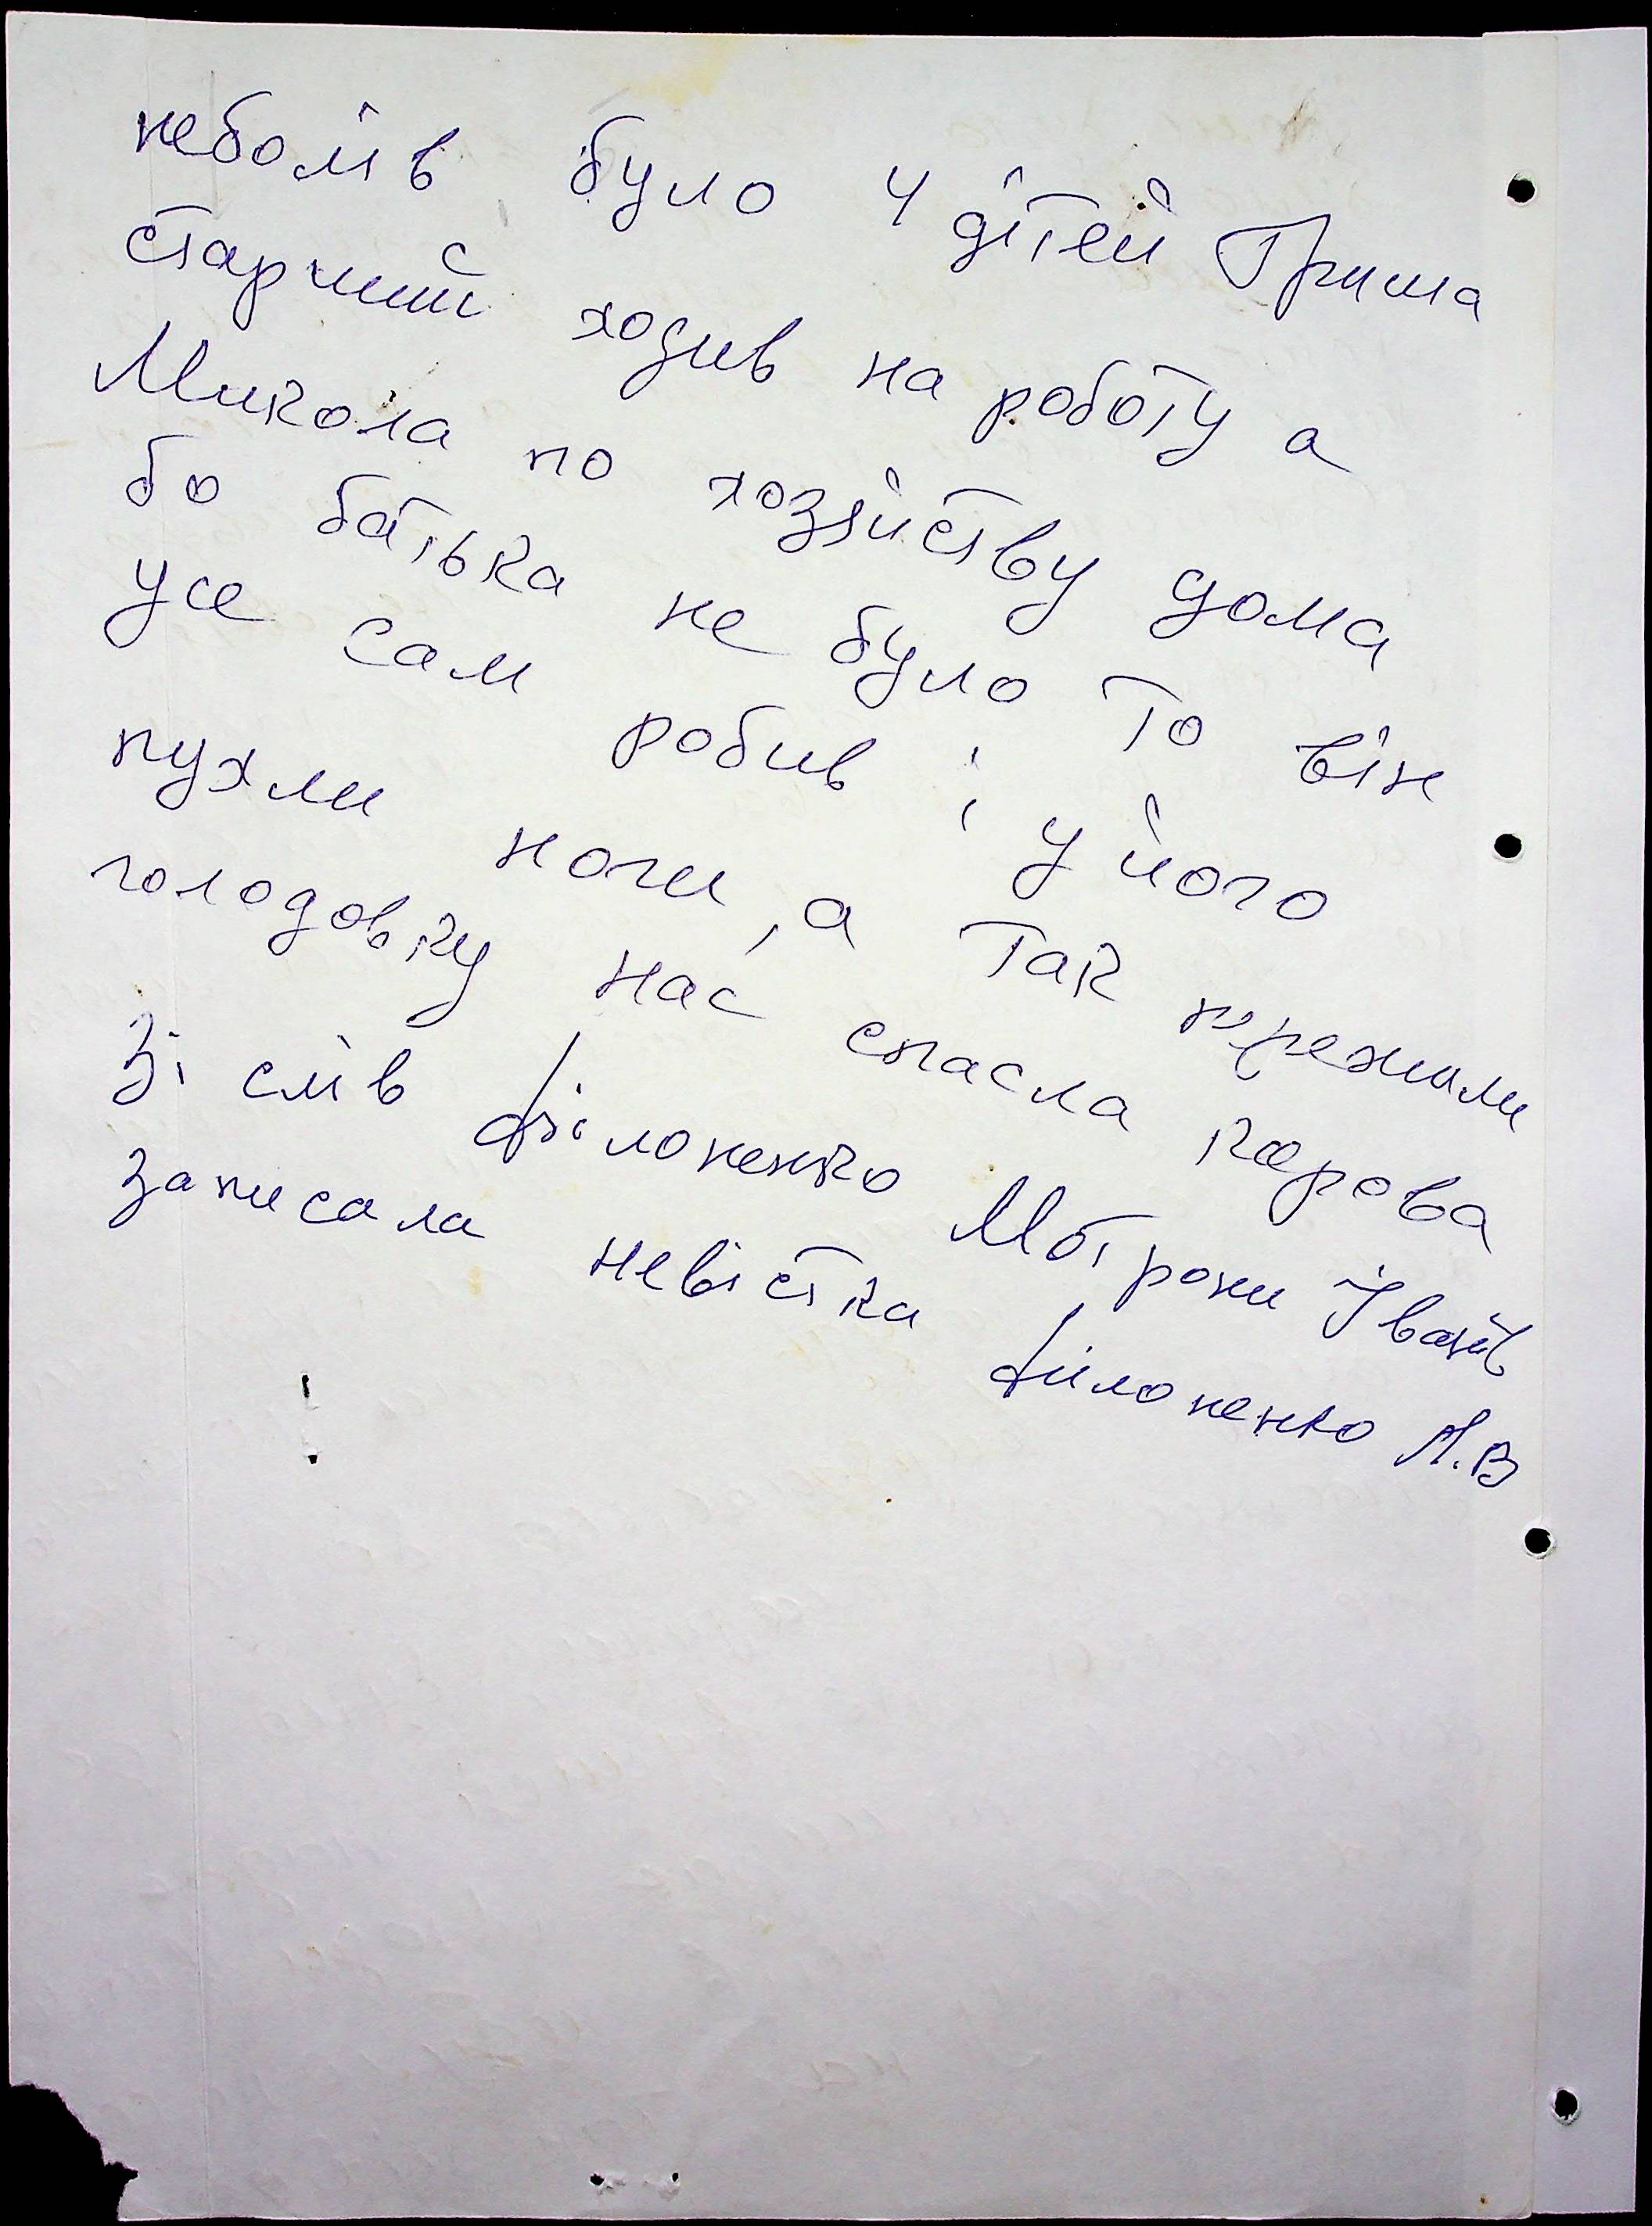 неболів було 4 дітей Гриша
старший ходив на роботу а
Микола по хозяйству дома
бо батька не було то він
усе сам робив і у його
пухли ноги, а так пережили
голодовку нас спасла карова
Зі слів Філоненко Мотрони Іванів
записала невістка Філоненко А.В